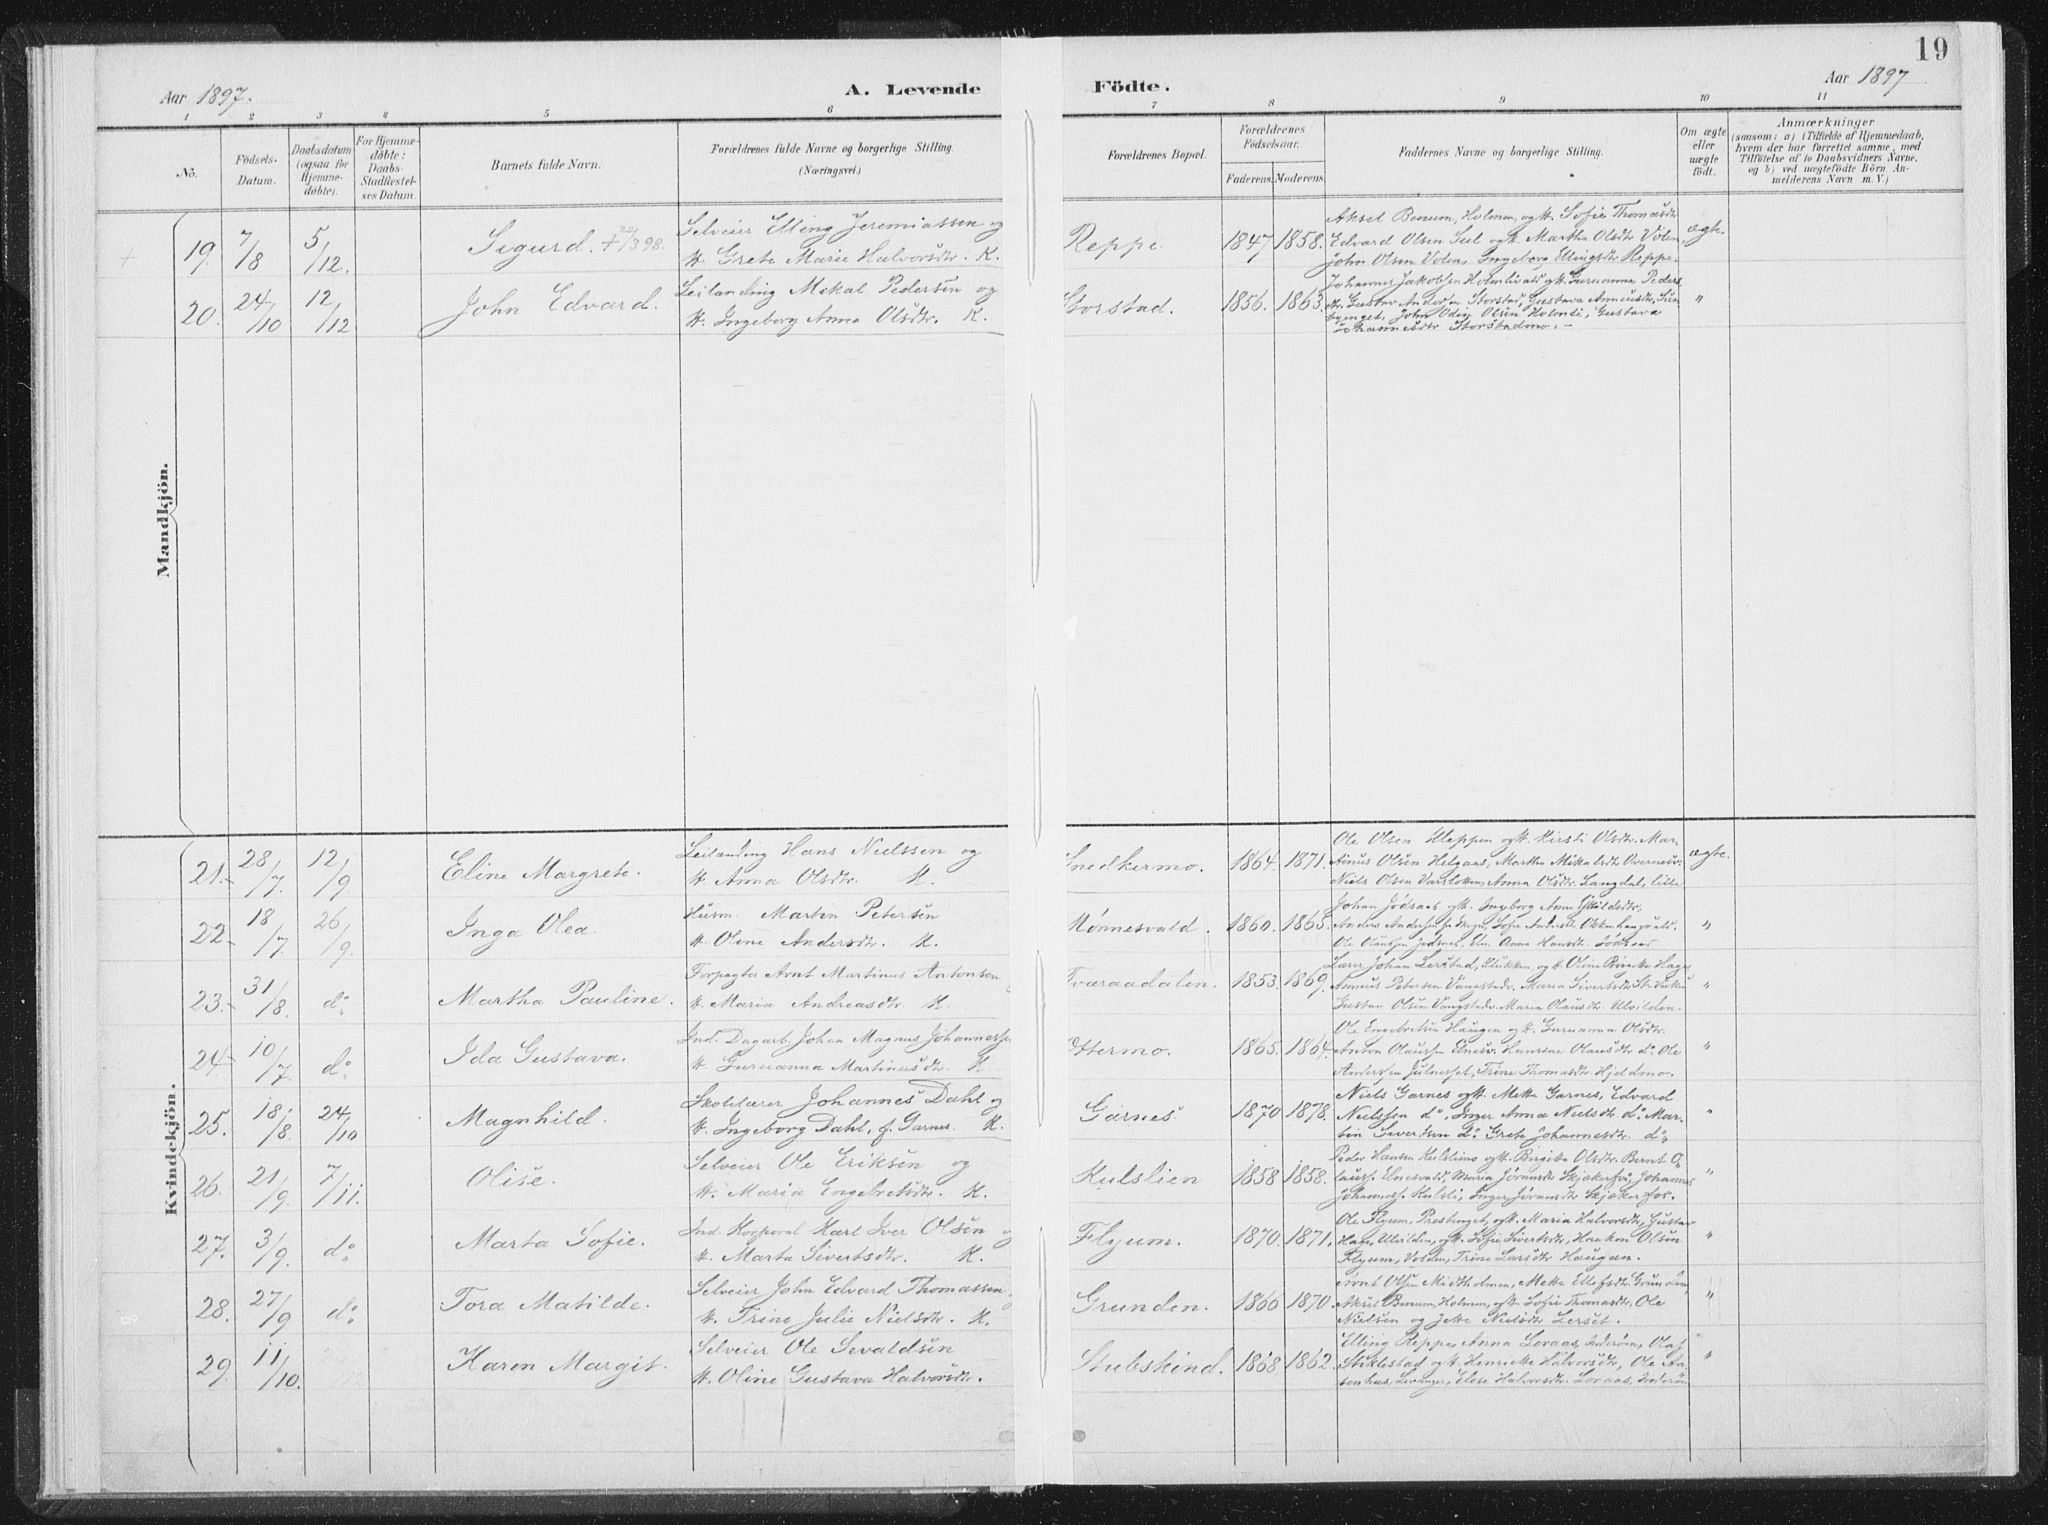 19
Aar 1897.
A. Levende
Födte.
Aar 1897
1 2 3 4 5 6 7 8 9 10 11
No.
Födsels-Datum.
Daabsdatum (ogsaa for Hjemme-døbte).
For Hjemme-døbte: Daabs-Stadfæstel-ses Datum.
Barnets fulde Navn.
Forældrenes fulde Navne og borgerlige Stilling. (Næringsvei.)
Forældrenes Bopæl.
Forældrenes Födselsaar.
Faderens. Moderens.
Faddernes Navne og borgerlige Stilling.
Om ægte eller uægte født.
Anmærkninger
(saasom: a) i Tilfælde af Hjemmedaab, hvem der har forrettet samme, med Tilføielse af to Daabsvidners Navne, og b) ved uægtefødte Börn An-melderens Navn m. V.)
Mandkjön.
19. 7/8 5/12. Sigurd. Selveier Elling Jeremiassen og
H. Grete Marie Halvorsdtr. K. Reppe. 1847. 1858. ægte.
Aksel Benum, Holmen, og H. Sofie Thomasdtr
Edvard Olsen Sul og H. Martha Olsdtr Volen,
John Olsen Volen, Ingeborg Ellingsdtr Reppe.
20. 24/10 12/12 John Edvard. Leilending Mikal Pedersen og
H. Ingeborg Anna Olsdtr. K. Storstad. 1856. 1863. "
Johannes Jakobsen Holmlivald og H. Guruanna Peders
dtr. Gustav Andersen Storstad, Gustava
John Odin Olsen Holmli, Gustava
Johannesdtr Storstadmo. –
Kvindekjön.
21. 28/7. 12/9. Eline Margrete. Leilending Hans Nielssen og
H. Anna Olsdtr. K. Snedkermo. 1864. 1871. ægte.
Ole Olsen Kleppen og H. Kirsti Olsdtr. Mar-
tinus Olsen Helgaas, Martha Mikalsdtr
Niels Olsen Anna Olsdtr. Langdal, lille
22. 18/7. 26/9. Inga Olea. Husm. Martin Petersen
H. Oline Andersdtr. K. Mønnesvald. 1860. 1865. "
Johan Jøssaas og H. Ingeborg Anna
23. 31/8. do. Martha Pauline. Forpagter Arnt Martinus Antonsen
H. Maria Andreasdtr. K. Tværaadalen. 1853. 1869. "
Lærer Johan Lerstad, og H. Oline
Petersen Maria Sivertsdtr
Gustav Olsen Maria Olausdtr. Ulvilden.
24. 10/7. do. Ida Gustava. Ind. Dagarb. Johan Magnus Johannessen
H. Guruanna Martinusdtr. K. Ottermo. 1865. 1864. "
Ole Engebretsen Haugen og H. Guruanna Olsdtr.
Anton Olaussen Hansine Olausdtr do. Ole
Anderssen Julneset, Trine Thomasdtr. Hjeldmo.
25. 18/8. 24/10 Magnhild. Skolelærer Johannes Dahl og
H. Ingeborg Dahl, f. Garnes. K. Garnes 1870 1878. "
Niels Garnes og H. Mette Garnes, Edvard
Nielssen do, Inger Anna Nielsdtr do. Mar-
tin Sivertsen do. Grete Johannesdtr. do.
26. 21/9. 7/11. Olise. Selveier Ole Eriksen og
H. Maria Engebretsdtr. K. Kulslien 1858 1858. "
Peder Hansen Kulslimo og H. Birgitta Olsdtr. Bernt O-
lauss. Ebnesvald, Maria Jøransdtr Skjækerfos, Johannes
Johanness. Kulsli, Inger Jøransdtr Skjækerfos.
27. 3/9. do. Marta Sofie. Ind. Korporal Karl Iver Olsen og
H. Marta Sivertsdtr. K. Flyum. 1870. 1871. "
Ole Flyum, Præsteget, og H. Maria Halvorsdtr, Gustav
Hage, Ulvilden, og H. Sofie Sivertsdtr, Haakon Olsen
Flyum, Volden, Trine Larsdtr Haugan.
28. 27/9 do. Tora Matilde. Selveier John Edvard Thomassen
H. Trine Julie Nielsdtr. K. Grunden. 1866 1870. "
Arnt Olsen Midtholmen, Mette Ellefsdtr Grunden,
Aksel Benum, Holmen, og H. Sofie Thomasdtr. Ole
Nielsen og Jette Nielsdtr Lerset.
29. 11/10. Karen Margit. Selveier Ole Sevaldsen
H. Oline Gustava Halvorsdtr. Stubskind. 1868. 1862. "
Elling Reppe, Anna Loraas, Inderøen, Olaf
Stiklestad og H. Henrikke Halvorsdtr, Ole Aa-
senhus, Levanger, Elise Halvorsdtr. Loraas, Inderøen